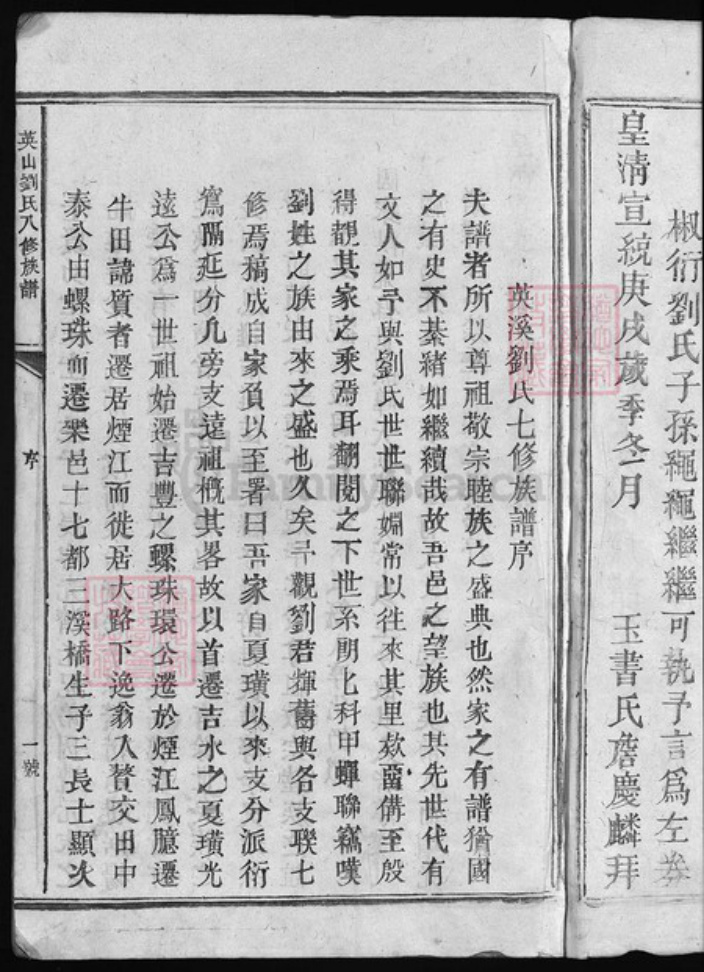 椒衍劉氏子孫繩繩繼繼可執予言爲左券
皇清宣統庚戌歲季冬月 玉書氏詹慶麟拜
英溪劉氏七修族譜序
夫譜者所以尊祖敬宗睦族之盛典也然家之有譜猶國
之有史不綦緒如繼續哉故吾邑之望族也其先世代有
文人如予與劉氏世世聯姻常以往來其里欵留備至殷
得覩其家之乘焉耳翻閱之下世系朗匕科甲蟬聯竊嘆
劉姓之族由來之盛也久矣予觀劉君輝舊與各支聯七
修焉稿成自家負以至署曰吾家自夏璜以來支分派衍
寫隔延分几旁支遠祖槪其畧故以首遷吉水之夏璜光
遠公爲一世祖始遷吉豐之螺珠環公遷於煙江鳳臆遷
牛田諱質者遷居煙江而徙居大路下逸翁入贅交田中
泰公由螺珠而遷樂邑十七都三溪橋生子三長士顯次
英山劉氏八修族譜
序
一號
FamilySearch